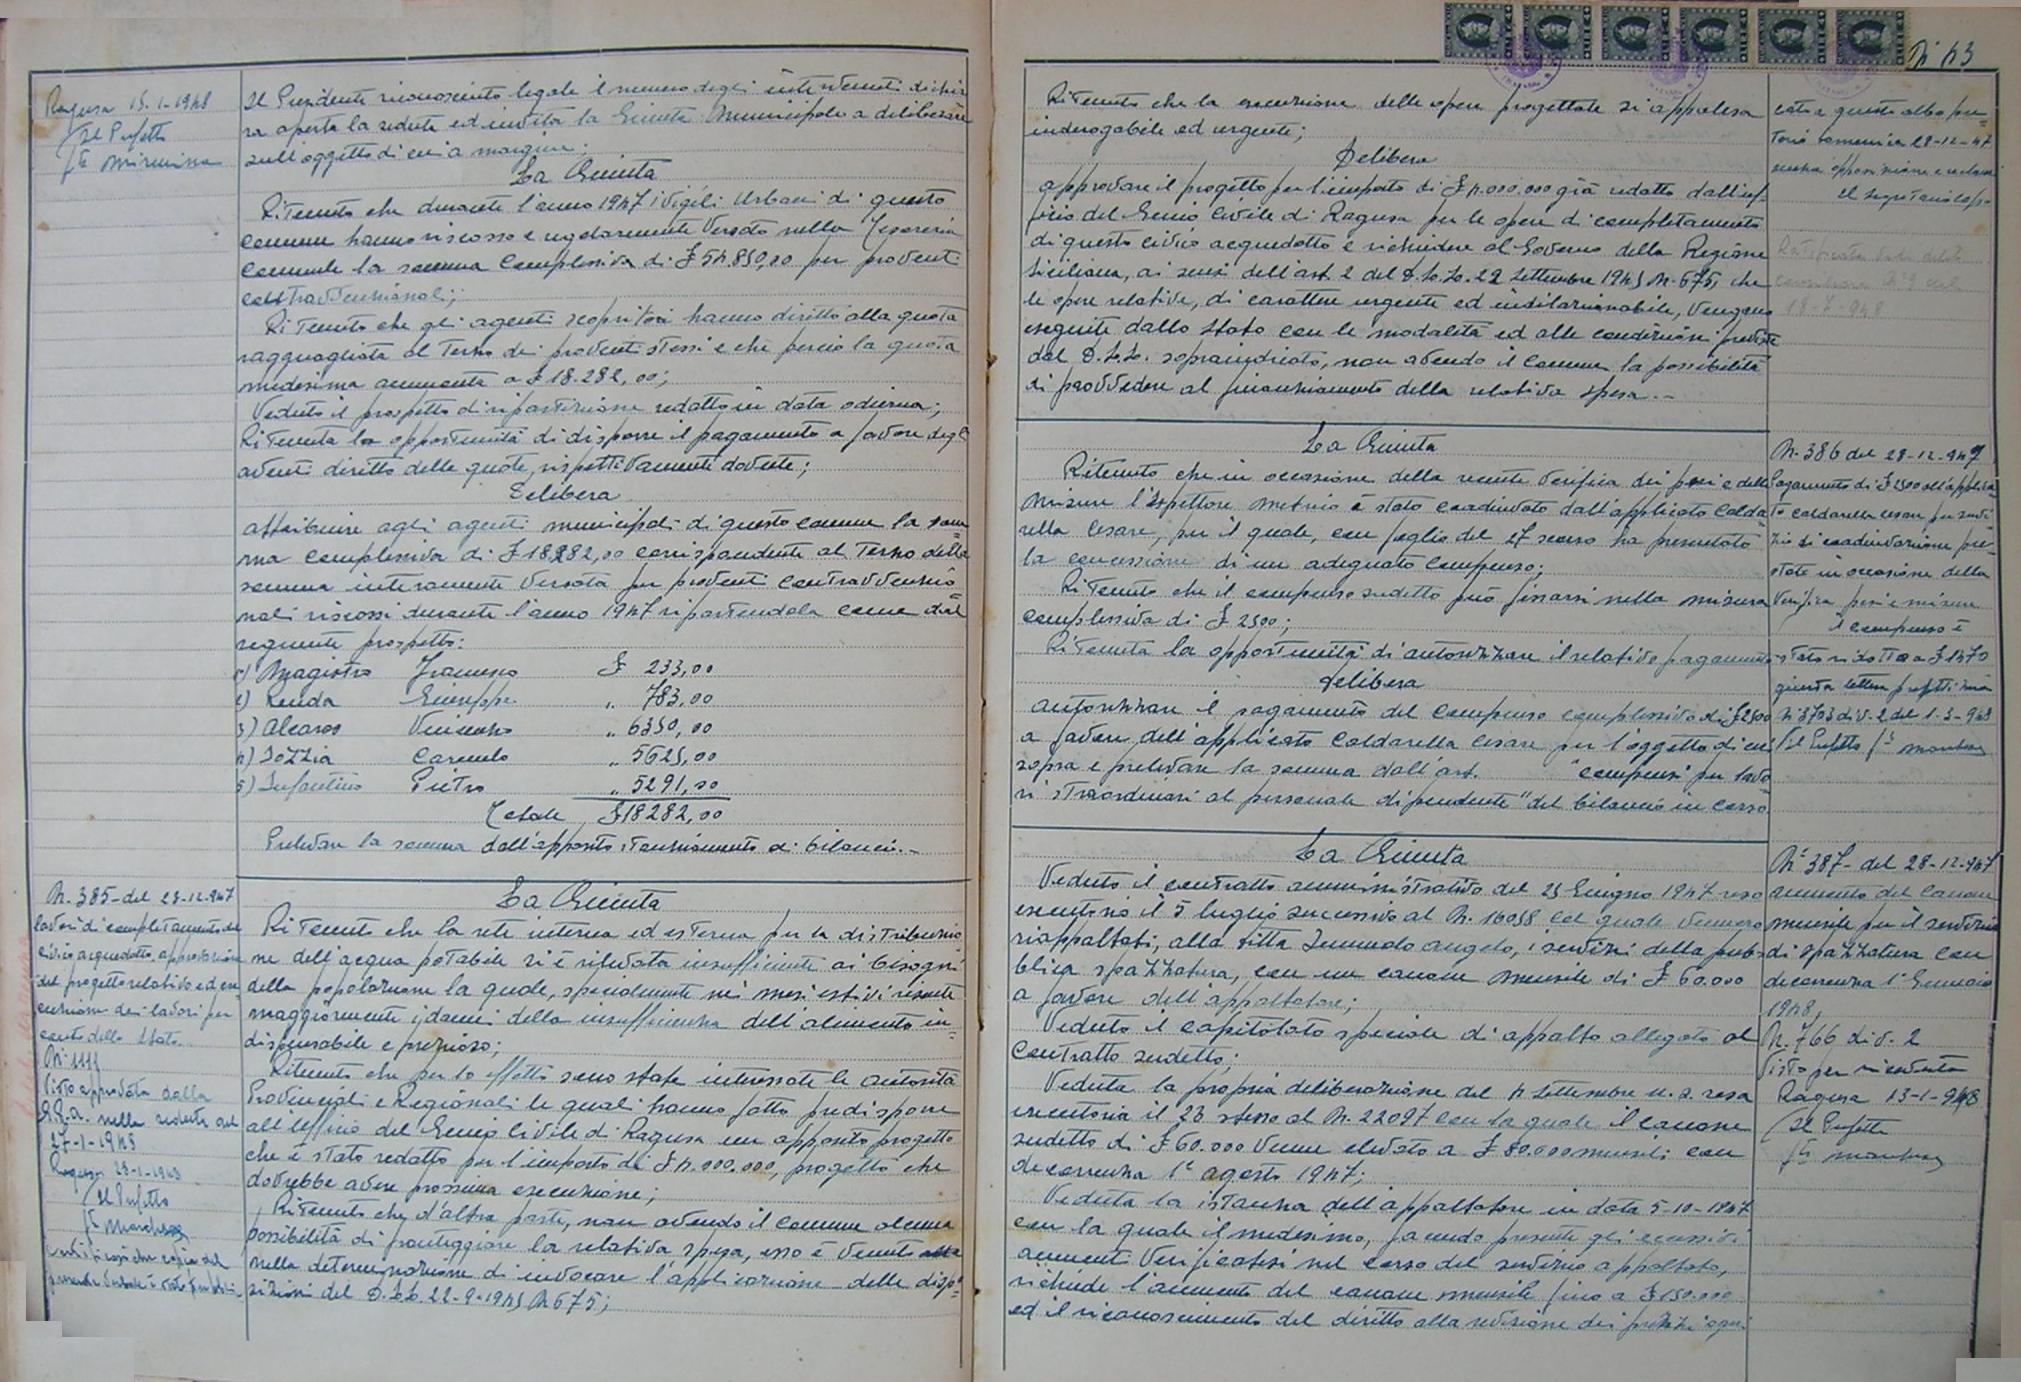 Ragusa 15-1-1948
Il Prefetto
Il Presidente riconosciuto legale il numero degli intervenuti dichia
ra aperta la seduta ed invita la Giunta Municipale a deliberare
sull'oggetto di cui a margine:
La Giunta
Ritenuto che durante l'anno 1947 i Vigili Urbani di questo
comune hanno riscosso e regolarmente versato nella Tesoreria
comunale la somma complessiva di £ 54.850,00 per proventi
contravvenzionali;
Ritenuto che gli agenti scopritori hanno diritto alla quota
ragguagliata al terzo dei proventi stessi e che perciò la quota
medesima ammonta a £ 18.282,00;
Veduto il prospetto di ripartizione redatto in data odierna;
Ritenuta la opportunità di disporre il pagamento a favore degli
aventi diritto delle quote, rispettivamente dovute;
Delibera
attribuire agli agenti municipali di questo comune la som
ma complessiva di £ 18282,00 corrispondente al terzo della
somma interamente versata per proventi contravvenzio
nali riscossi durante l'anno 1947 ripartendola come dal
seguente prospetto:
1) Magistro Francesco £ 233,00
2) Renda Giuseppe " 783,00
3) Alcaros Vincenzo " 6350,00
4) Iozzia Carmelo " 5625,00
5) Infantino Pietro " 5291,00
Totale £ 18282,00
Prelevare la somma dall'apposito stanziamento di bilancio.-
N. 385- del 28-12-947
lavori di completamento del
civico acquedotto, approvazione
del progetto relativo ed ese
cuzione dei lavori per
conto dello Stato.
N° 1111
Visto approvata dalla
G.P.A. nella seduta del
27-1-1948
Ragusa 28-1-1948
Il Prefetto
Certifico che copia del
presente verbale è stata pubbli-
La Giunta
Ritenuto che la rete interna ed esterna per la distribuzio
ne dell'acqua potabile si è rilevata insufficiente ai bisogni
della popolazione la quale, specialmente nei mesi estivi risente
maggiormente i danni della insufficienza dell'alimento in-
dispensabile e prezioso;
Ritenuto che per lo effetto sono state interessate le autorità
Provinciali e Regionali le quali hanno fatto predisporre
all'ufficio del Genio Civile di Ragusa un apposito progetto
che è stato redatto per l'importo di £ 4.000.000, progetto che
dovrebbe avere prossima esecuzione;
Ritenuto che, d'altra parte, non avendo il comune alcuna
possibilità di fronteggiare la relativa spesa, esso è venuto
nella determinazione di invocare l'applicazione delle dispo-
sizioni del D.L.L. 22-9-1945 N 675;
N 43
Ritenuto che la esecuzione delle opere progettate si appalesa
inderogabile ed urgente;
Delibera
approvare il progetto per l'importo di £ 4.000.000 già redatto dall'uf-
ficio del Genio Civile di Ragusa per le opere di completamento
di questo civico acquedotto e richiedere al Governo della Regione
Siciliana, ai sensi dell'art. 2 del D.L.L. 22 Settembre 1945 N. 675, che
le opere relative, di carattere urgente ed indilazionabile, vengano
eseguite dallo Stato con le modalità ed alle condizioni previste
dal D.L.L. sopraindicato, non avendo il comune la possibilità
di provvedere al finanziamento della relativa spesa.-
cata a questo albo pre=
torio domenica 28-12-47
senza opposizione e reclami
Il Segretario capo
Ratificata
18-7-948
La Giunta
Ritenuto che in occasione della recente verifica dei pesi e delle
misure l'Ispettore Metrico è stato coadiuvato dall'applicato Calda-
rella Cesare, per il quale, con foglio del 27 scorso ha presentato
la concessione di un adeguato compenso;
Ritenuto che il compenso sudetto può fissarsi nella misura
complessiva di £ 2500;
Ritenuta la opportunità di autorizzare il relativo pagamento
delibera
autorizzare il pagamento del compenso complessivo di £ 2500
a favore dell'applicato Caldarella Cesare per l'oggetto di cui
sopra e prelevare la somma dall'art. "compensi per lavo
ri straordinari al personale dipendente" del bilancio in corso.
N. 386 del 28-12-947
Pagamento di £ 2500 all'applica
to Caldarella Cesare per servi-
zio di coadiuvazione pre-
stato in occasione della
verifica pesi e misure
Il compenso è
stato ridotto a £ 1470
giusta lettera prefettizia
N 3703 div. 2 del 1-3-948
Il Prefetto
La Giunta
Veduto il contratto amministrativo del 25 Giugno 1947 reso
esecutorio il 5 luglio successivo al N. 16058 col quale vennero
riappaltati, alla ditta Iemmolo Angelo, i servizi della pub-
blica spazzatura, con un canone mensile di £ 60.000
a favore dell'appaltatore;
Veduto il capitolato speciale di appalto allegato al
contratto sudetto;
Veduta la propria deliberazione del 4 Settembre u.s. resa
esecutoria il 23 stesso al N. 22097 con la quale il canone
sudetto di £ 60.000 venne elevato a £ 80.000 mensili con
decorrenza 1° agosto 1947;
Veduta la istanza dell'appaltatore in data 5-10-1947
con la quale il medesimo, facendo presente gli eccessivi
aumenti verificatisi nel corso del servizio appaltato,
richiede l'aumento del canone mensile fino a £ 150.000
ed il riconoscimento del diritto alla revisione dei prezzi ogni
N° 387- del 28-12-947
aumento del canone
mensile per il servizio
di spazzatura con
decorrenza 1° Gennaio
1948,
N. 766 div. 2
Visto per ricevuta
Ragusa 13-1-948
Il Prefetto